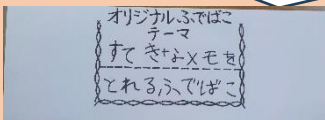 オリジナルふでばこ
テーマ
すてきなメモを
とれるふでばこ